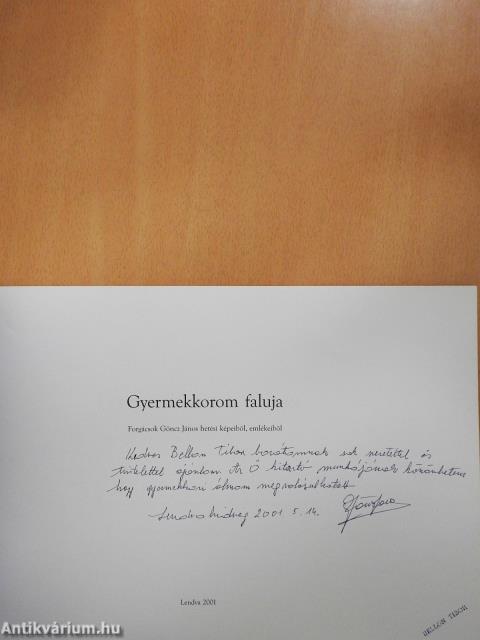 Gyermekkorom faluja
Forgácsok Göncz János hetési képeiből, emlékeiből
Kedves Bellon Tibor barátomnak sok szeretettel és
tisztelettel ajánlom. Az Ő kitartó munkájának köszönhetem
hogy gyermekkori álmom megvalósulhatott.
Lendvahídvég 2001. 5. 14.
Lendva 2001
BELLON TIBOR
Antikvárium.hu